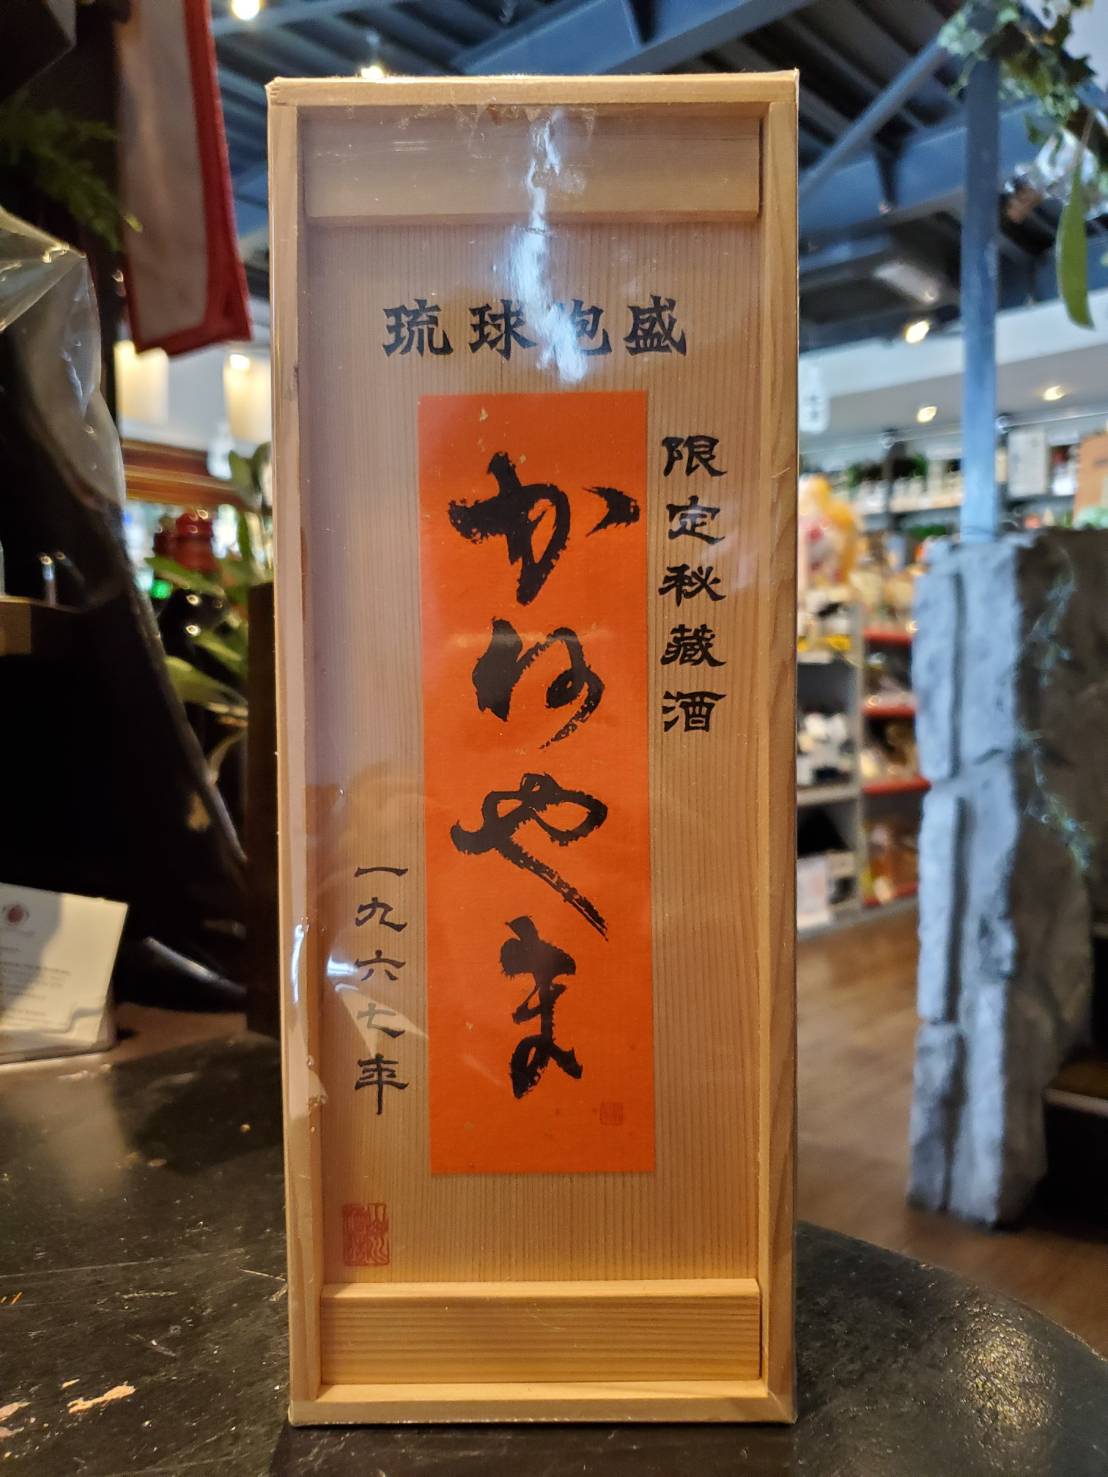 琉球泡盛
限定秘蔵酒
かりやま
一九六七年